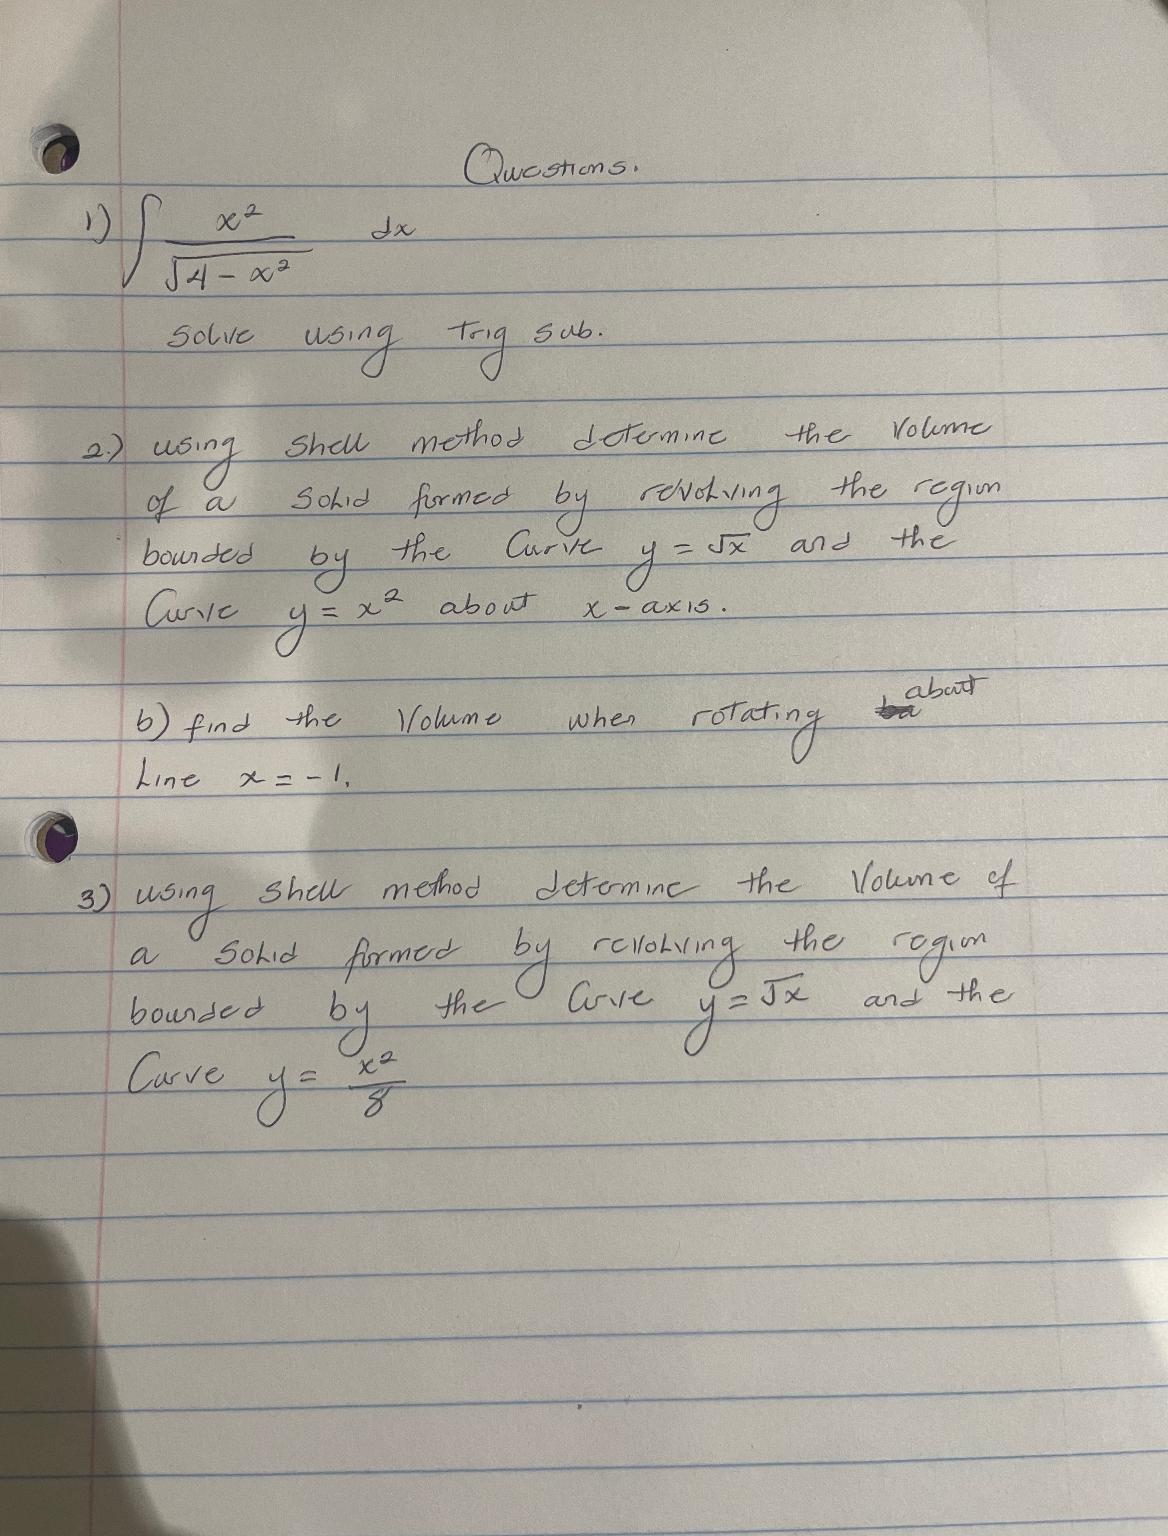 Questions.
1) ∫ x² / √4 - x² dx
Solve using trig sub.
2.) using shell method determine the volume
of a solid formed by revolving the region
bounded by the curve y = √x and the
Curve y = x² about x-axis.
b) find the volume when rotating about
Line x = -1.
3) using shell method determine the volume of
a solid formed by revolving the region
bounded by the curve y = √x and the
Curve y = x²/8